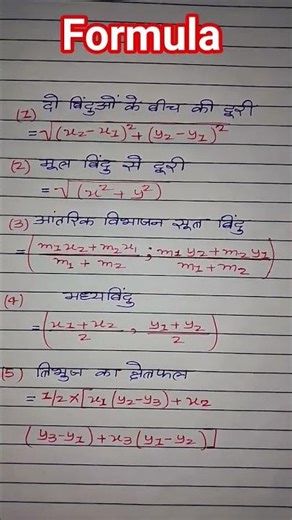 Formula
(1) दो बिंदुओं के बीच की दूरी
= √(x₂-x₁)² + (y₂-y₁)²
(2) मूल बिंदु से दूरी
= √(x² + y²)
(3) आंतरिक विभाजन सूत्र बिंदु
= (m₁x₂+m₂x₁/m₁+m₂ ; m₁y₂+m₂y₁/m₁+m₂)
(4) मध्यबिंदु
= (x₁+x₂/2 , y₁+y₂/2)
(5) त्रिभुज का क्षेत्रफल
= 1/2 × [x₁(y₂-y₃)+x₂
(y₃-y₁)+x₃(y₁-y₂)]